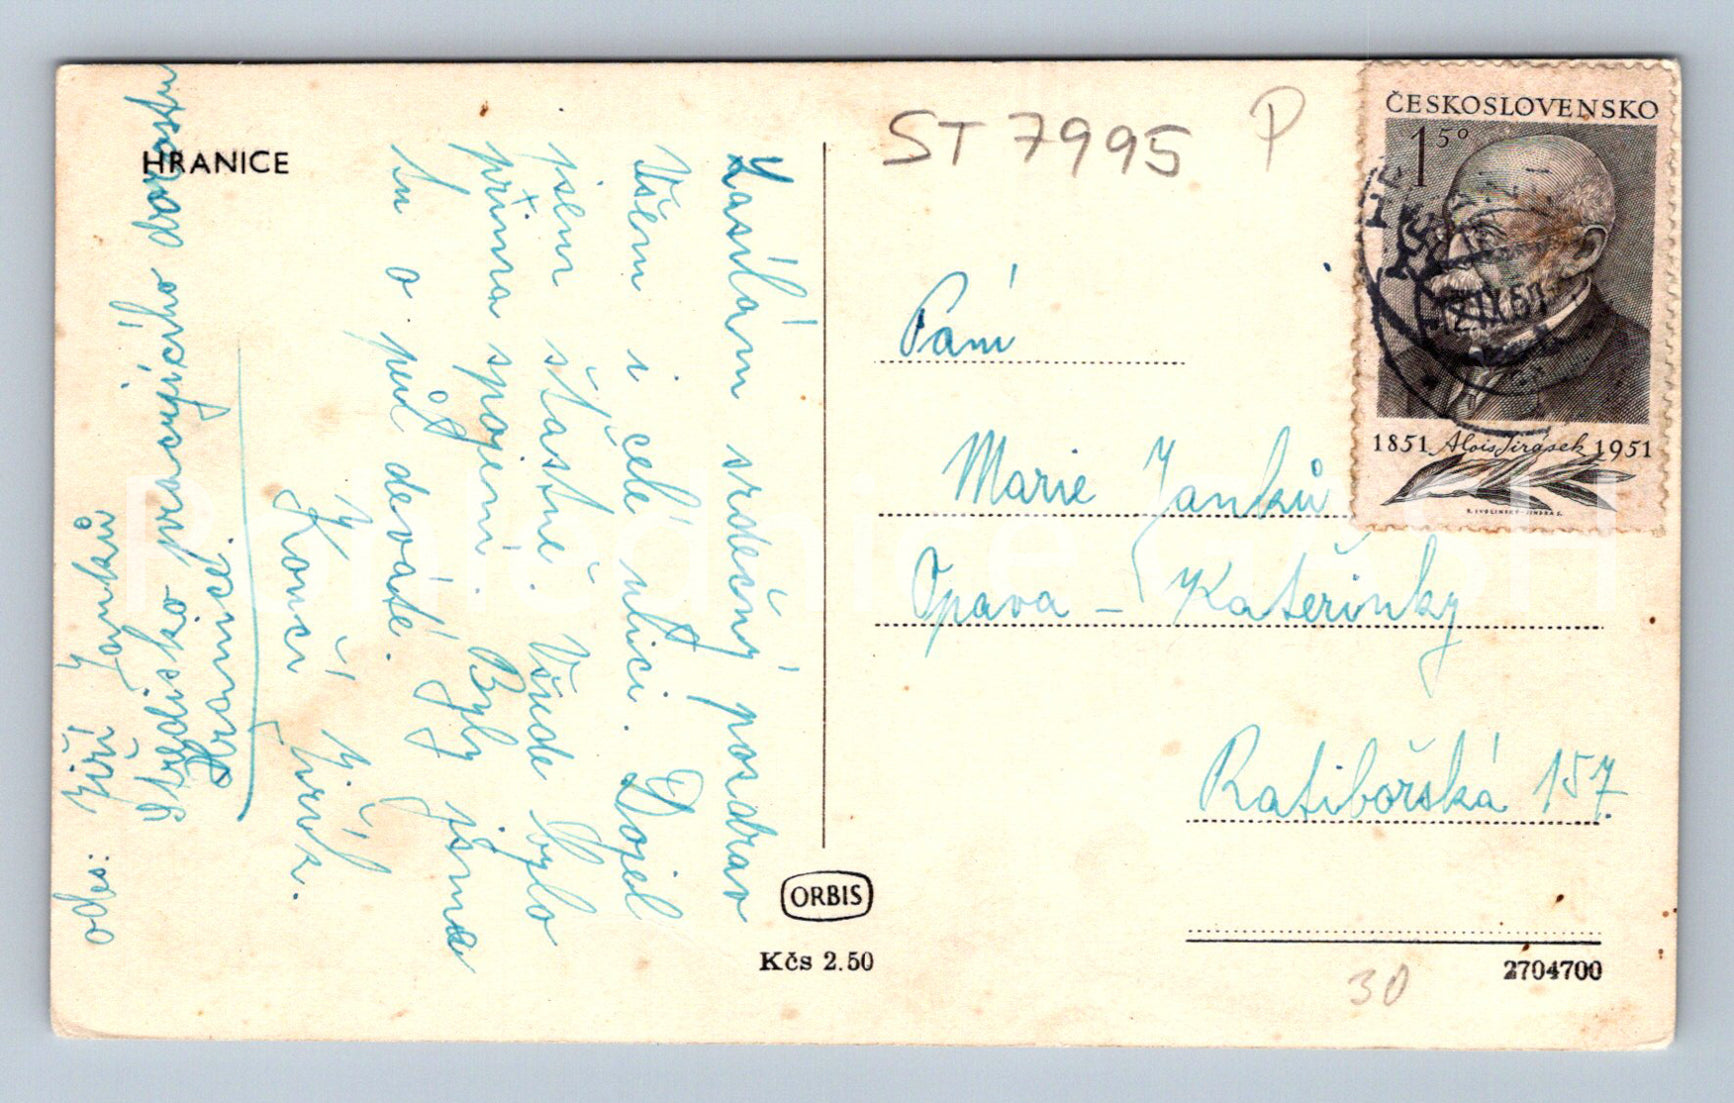 HRANICE
Zasílám srdečný pozdrav
Všem i celé ulici. Dojel
jsem šťastně. Všude bylo
přímá spojení. Byly jsme
tu o půl deváté.
Končí Jiřík.
odes: Jiří Janků
Středisko pracujícího dorostu
Hranice.
ST 7995 P
ČESKOSLOVENSKO
1 50
1851 Alois Jirásek 1951
Paní
Marie Janků
Opava - Kateřinky
Ratibořská 157.
ORBIS
Kčs 2.50
2704700
30